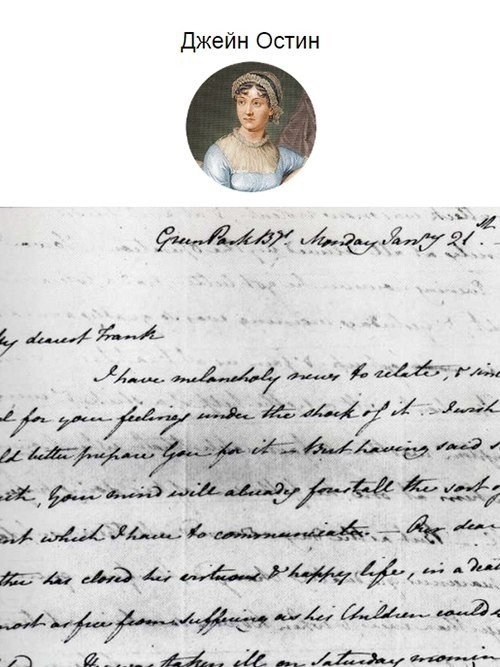 Джейн Остин
Green Park Bgs. Monday Janry 21st.
My dearest Frank
I have melancholy news to relate, & sin
l for your feelings under the shock of it. I wish
ld better prepare You for it. But having said s
Your mind will already forestall the sort of
nt which I have to communicate. — Our dear
ther has closed his virtuous & happy life, in a deat
most as free from suffering as his Children could
He was taken ill on Saturday mornin